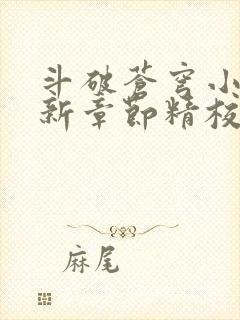 斗破苍穹小
新章节精校
麻尾